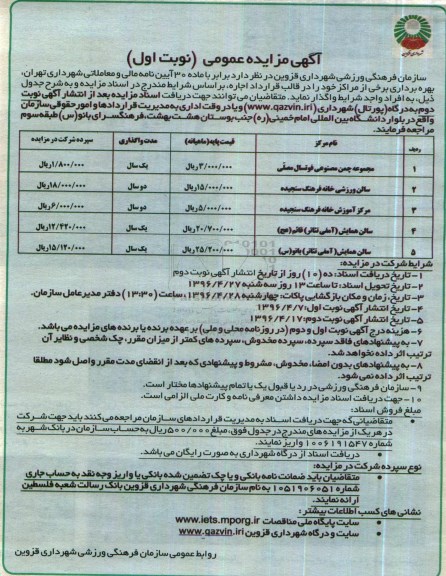 آگهی مزایده عمومی (نوبت اول)
سازمان فرهنگی ورزشی شهرداری قزوین در نظر دارد برابر با ماده ۳۰ آیین نامه مالی و معاملاتی شهرداری تهران،
بهره برداری برخی از مراکز خود را در قالب قرارداد اجاره، بر اساس شرایط مندرج در اسناد مزایده و به شرح جدول
ذیل، به افراد واجد شرایط واگذار نماید. متقاضیان می توانند جهت دریافت اسناد مزایده بعد از انتشار آگهی نوبت
دوم به درگاه (پورتال) شهرداری (www.qazvin.ir) و یا در وقت اداری به مدیریت قراردادها و امور حقوقی سازمان
واقع در بلوار دانشگاه بین المللی امام خمینی (ره) جنب بوستان هشت بهشت، فرهنگسرای بانو (س) طبقه سوم
مراجعه فرمایند.
ردیف نام مرکز قیمت پایه (ماهیانه) مدت واگذاری سپرده شرکت در مزایده
۱ مجموعه چمن مصنوعی فوتسال مصلّی ۳/۰۰۰/۰۰۰ ریال یک سال ۱/۸۰۰/۰۰۰ ریال
۲ سالن ورزشی خانه فرهنگ سنجیده ۱۵/۰۰۰/۰۰۰ ریال دو سال ۱۸/۰۰۰/۰۰۰ ریال
۳ مرکز آموزش خانه فرهنگ سنجیده ۵/۰۰۰/۰۰۰ ریال دو سال ۶/۰۰۰/۰۰۰ ریال
۴ سالن همایش (آمفی تئاتر) قائم (عج) ۲۰/۷۰۰/۰۰۰ ریال یک سال ۱۲/۴۲۰/۰۰۰ ریال
۵ سالن همایش (آمفی تئاتر) بانو (س) ۲۵/۲۰۰/۰۰۰ ریال یک سال ۱۵/۱۲۰/۰۰۰ ریال
شرایط شرکت در مزایده:
۱- تاریخ دریافت اسناد: ده (۱۰) روز از تاریخ انتشار آگهی نوبت دوم
۲- تاریخ تحویل اسناد: تا ساعت ۱۳ روز سه شنبه ۱۳۹۶/۴/۲۷
۳- تاریخ، زمان و مکان بازگشایی پاکات: چهارشنبه ۱۳۹۶/۴/۲۸، ساعت (۱۳:۳۰) دفتر مدیر عامل سازمان.
۴- تاریخ انتشار آگهی نوبت اول: ۱۳۹۶/۴/۷
۵- تاریخ انتشار آگهی نوبت دوم: ۱۳۹۶/۴/۱۷
۶- هزینه درج آگهی نوبت اول و دوم (در روزنامه محلی و ملی) بر عهده برنده یا برنده های مزایده می باشد.
۷- به پیشنهادهای فاقد سپرده، سپرده مخدوش، سپرده های کمتر از میزان مقرر، چک شخصی و نظایر آن
ترتیب اثر داده نخواهد شد.
۸- به پیشنهادهای بدون امضا، مخدوش، مشروط و پیشنهادی که بعد از انقضای مدت مقرر واصل شود مطلقا
ترتیب اثر داده نمی شود.
۹- سازمان فرهنگی ورزشی در رد یا قبول یک یا تمام پیشنهادها مختار است.
۱۰- جهت دریافت اسناد مزایده داشتن معرفی نامه و کارت ملی الزامی است.
مبلغ فروش اسناد:
• متقاضیانی که جهت دریافت اسناد به مدیریت قراردادهای سازمان مراجعه می کنند باید جهت شرکت
در هر یک از مزایده های مندرج در جدول فوق، مبلغ ۵۰۰/۰۰۰ ریال به حساب سازمان در بانک شهر به
شماره ۱۰۰۶۱۹۱۵۴۷ واریز نمایند.
• دریافت اسناد از درگاه شهرداری به صورت رایگان می باشد.
نوع سپرده شرکت در مزایده:
• متقاضیان باید ضمانت نامه بانکی و یا چک تضمین شده بانکی یا واریز وجه نقد به حساب جاری
شماره ۱۰۵۱۹۰۶۰۵۱ به نام سازمان فرهنگی شهرداری قزوین بانک رسالت شعبه فلسطین
ارائه نمایند.
نشانی های کسب اطلاعات بیشتر:
• سایت پایگاه ملی مناقصات www.iets.mporg.ir
• سایت و درگاه شهرداری قزوین www.qazvin.ir
روابط عمومی سازمان فرهنگی ورزشی شهرداری قزوین